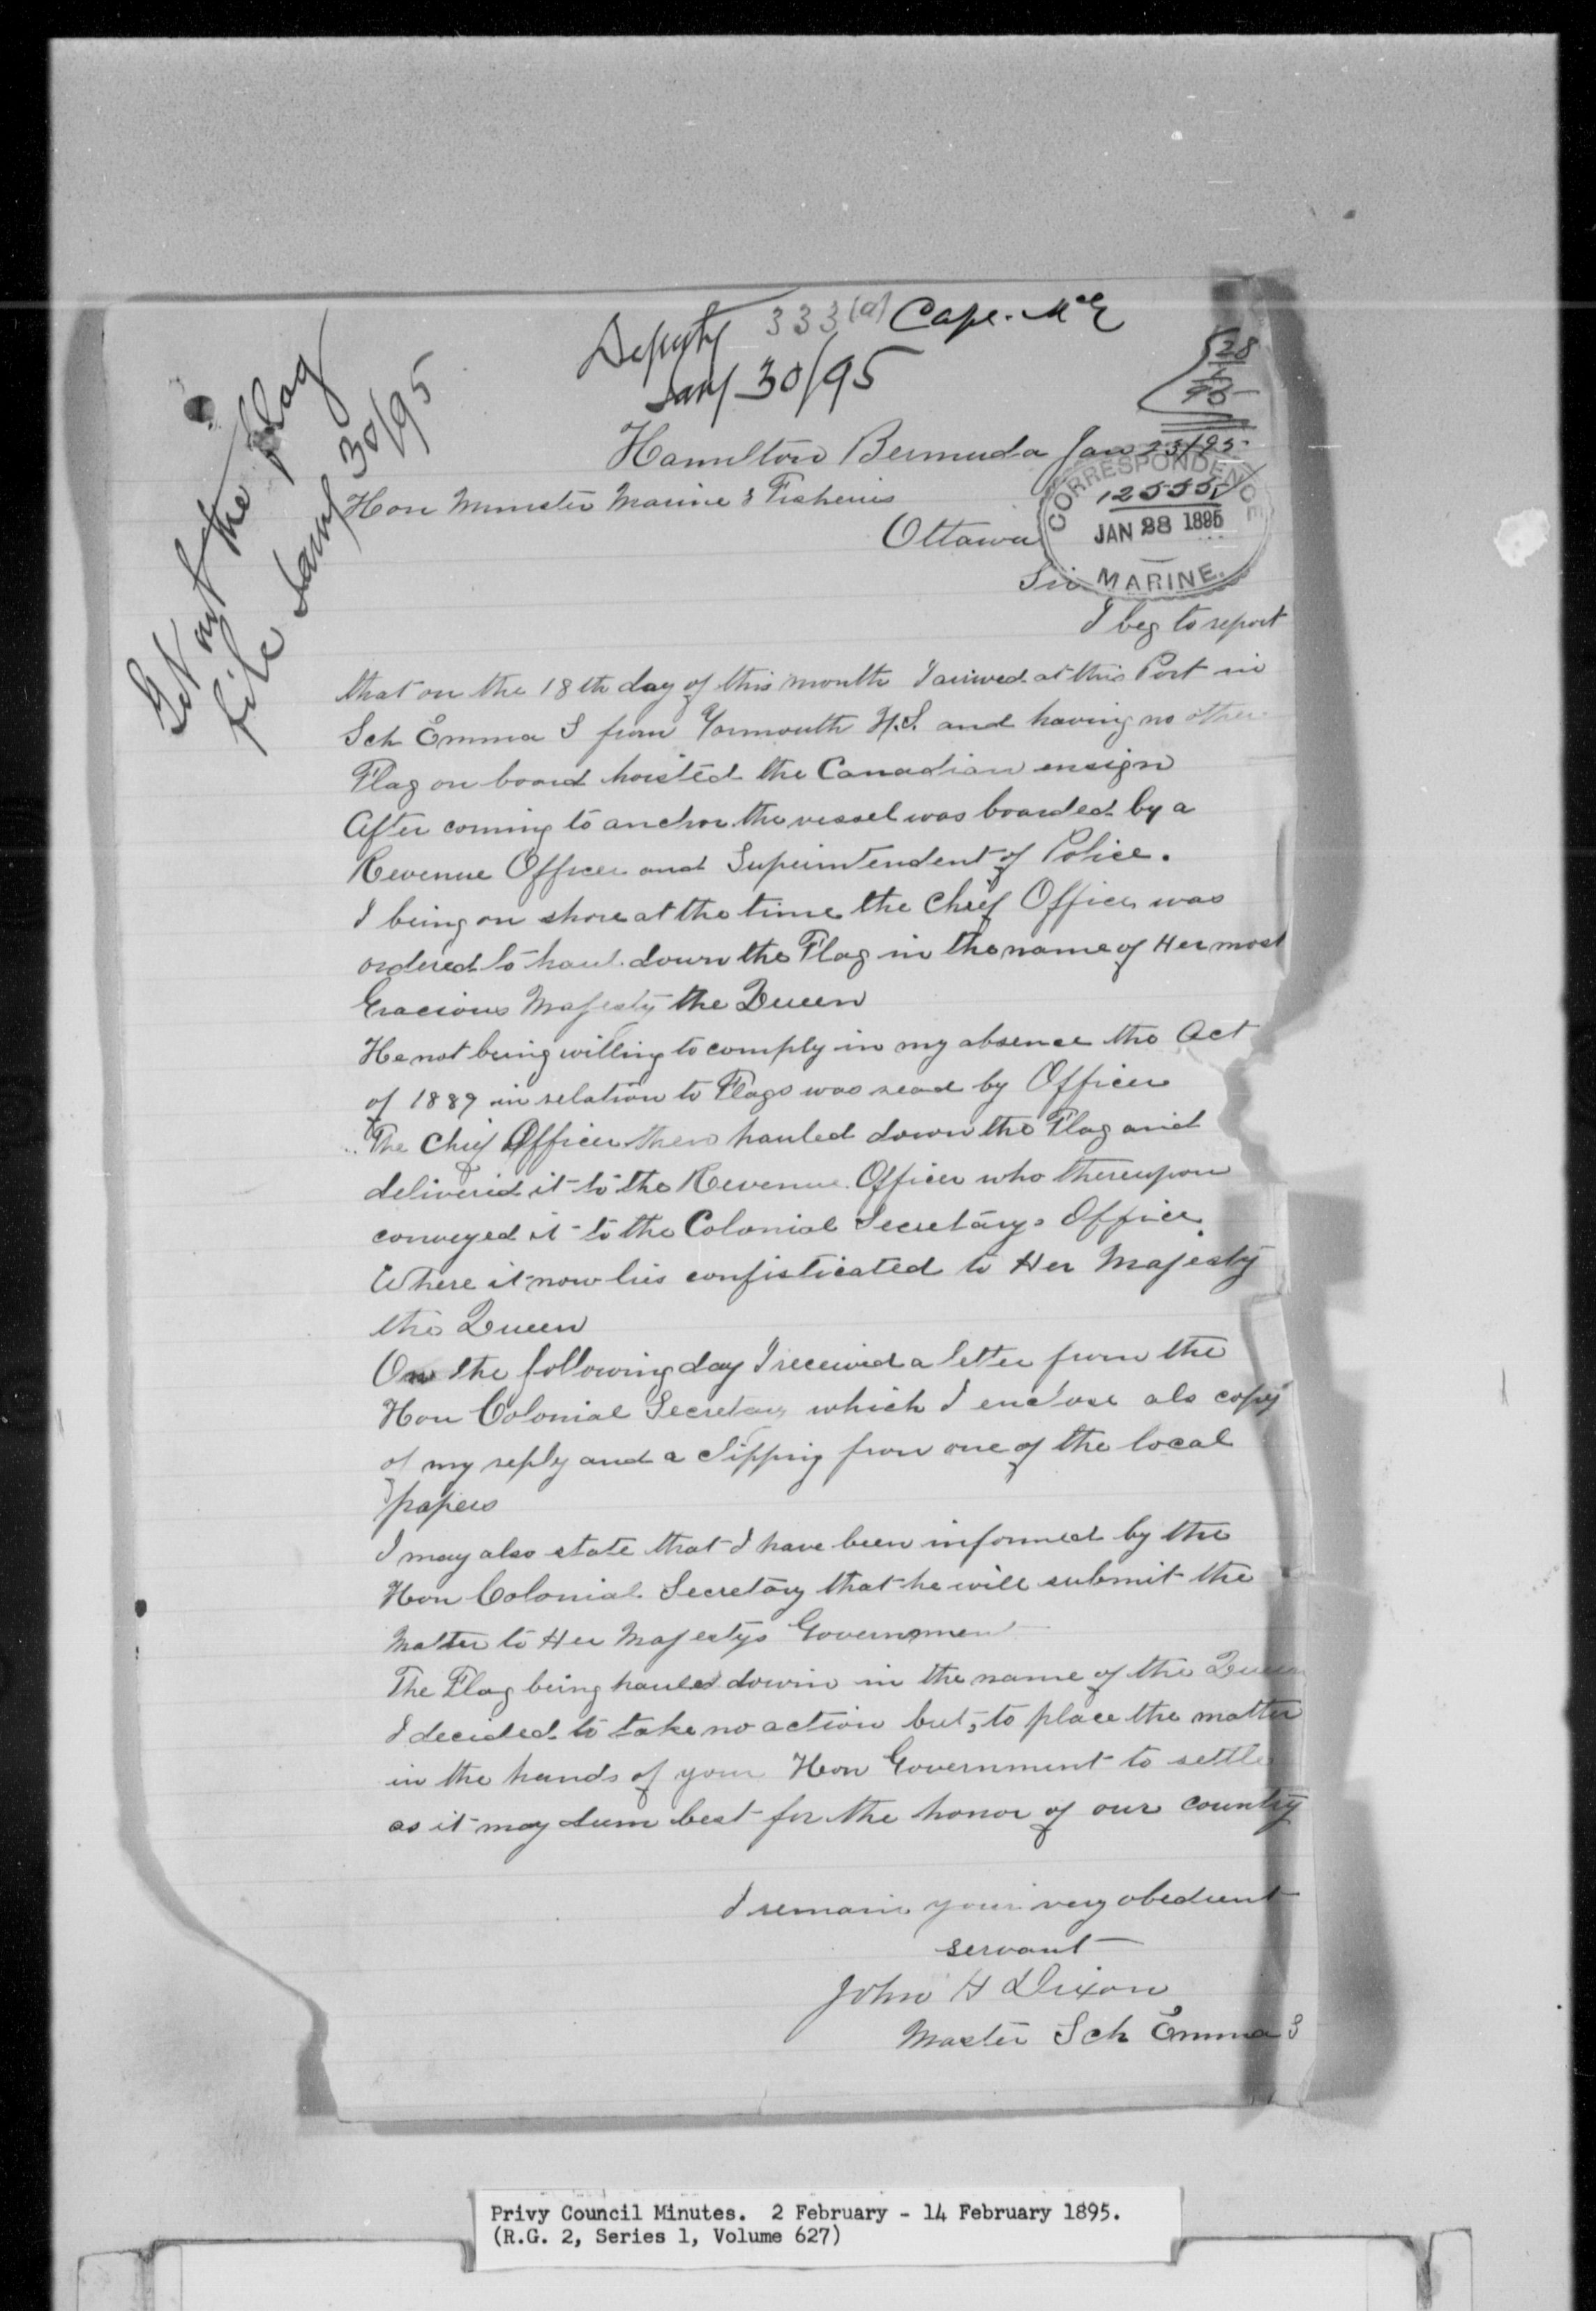 Deputy 333(a) Cape. McE
Jany 30/95
28
1
95
Get out the flag
file Jany 30/95
Hamilton Bermuda Jan 23/95
Hon Minister Marine & Fisheries
Ottawa
CORRESPONDENCE
12555
JAN 28 1895
MARINE.
Sir
I beg to report
that on the 18th day of this month I arrived at this Port in
Sch Emma S from Yarmouth N.S. and having no other
Flag on board hoisted the Canadian ensign
After coming to anchor the vessel was boarded by a
Revenue Officer and Superintendent of Police.
I being on shore at the time the Chief Officer was
ordered to haul down the Flag in the name of Her most
Gracious Majesty the Queen
He not being willing to comply in my absence the Act
of 1889 in relation to Flags was read by Officer
The Chief Officer then hauled down the Flag and
delivered it to the Revenue Officer who thereupon
conveyed it to the Colonial Secretarys Office.
Where it now lies confisticated to Her Majesty
the Queen
On the following day I received a letter from the
Hon Colonial Secretary which I enclose als copy
of my reply and a clipping from one of the local
papers
I may also state that I have been informed by the
Hon Colonial Secretary that he will submit the
Matter to Her Majestys Government
The Flag being hauled down in the name of the Queen
I decided to take no action but, to place the matter
in the hands of your Hon Government to settle
as it may seem best for the honor of our country
I remain your very obedient
servant
John H Dixon
Master Sch Emma S
Privy Council Minutes. 2 February - 14 February 1895.
(R.G. 2, Series 1, Volume 627)